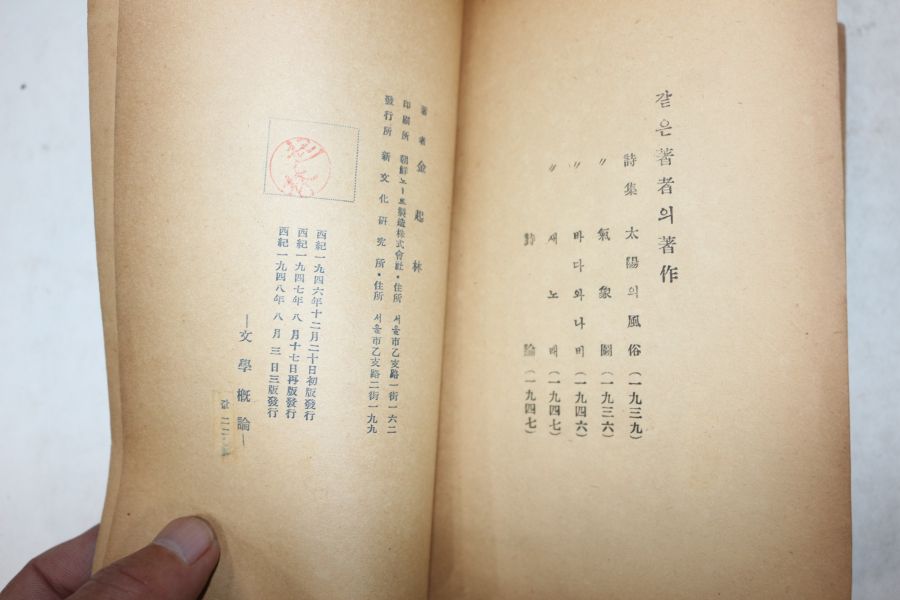 같은著者의著作
詩集 太陽의風俗(一九三九)
〃 氣象圖(一九三六)
〃 바다와나비(一九四六)
〃 새노래(一九四七)
詩論(一九四七)
著者 金起林
印刷所 朝鮮노ー트製造株式會社・住所 서울市乙支路一街一六二
發行所 新文化硏究所・住所 서울市乙支路二街一九九
西紀一九四六年十二月二十日初版發行
西紀一九四七年八月十七日再版發行
西紀一九四八年八月三日三版發行
―文學槪論―